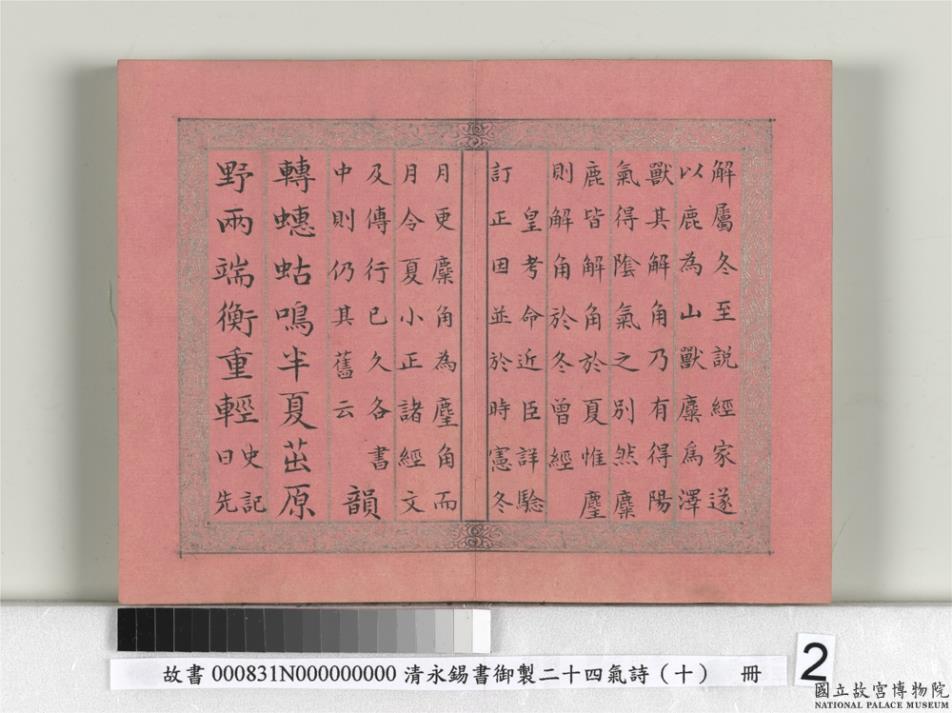 解屬冬至說經家遂
以鹿為山獸麋為澤
獸其解角乃有得陽
氣得陰氣之別然麋
鹿皆解角於夏惟麈
則解角於冬曾經
皇考命近臣詳驗
訂正因並於時憲冬
月更麋角為麈角而
月令夏小正諸經文
及傳行已久各書
中則仍其舊云
韻
轉蟪蛄鳴半夏茁原
野兩端衡重輕
史記
日先
故書 000831N000000000 清永錫書御製二十四氣詩（十） 冊
2
國立故宮博物院
NATIONAL PALACE MUSEUM